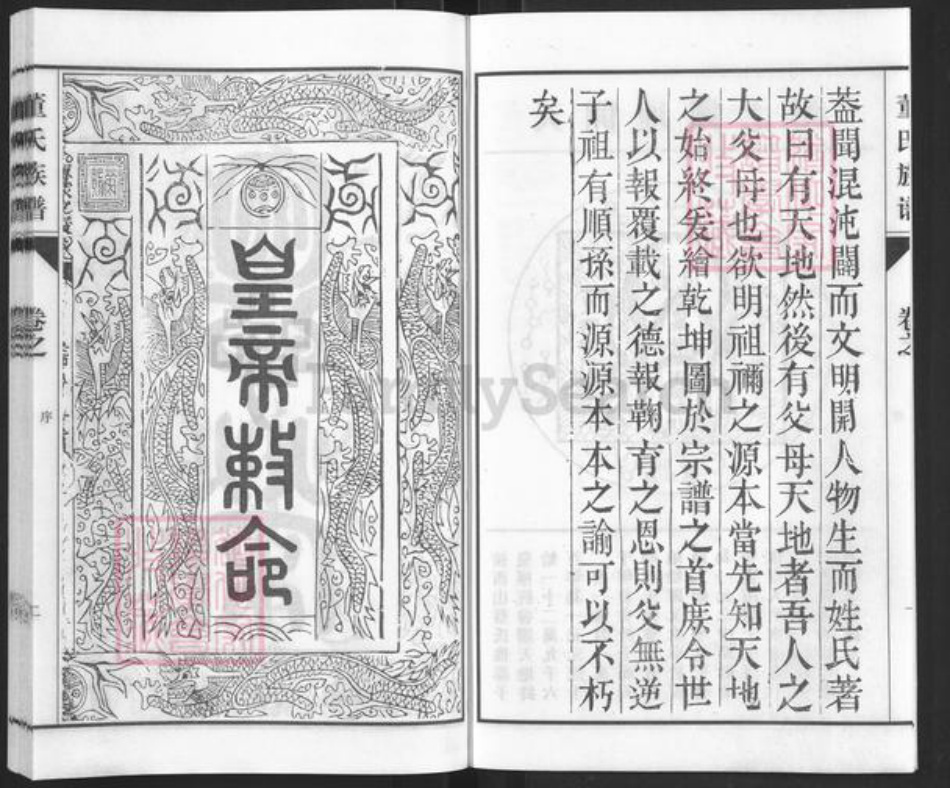 董氏族譜
卷之
葢聞混沌闢而文明開人物生而姓氏著
故曰有天地然後有父母天地者吾人之
大父母也欲明祖禰之源本當先知天地
之始終爰繪乾坤圖於宗譜之首庶令世
人以報覆載之德報鞠育之恩則父無逆
子祖有順孫而源源本本之諭可以不朽
矣
FamilySearch
皇帝敕命
董氏族譜
卷之
序